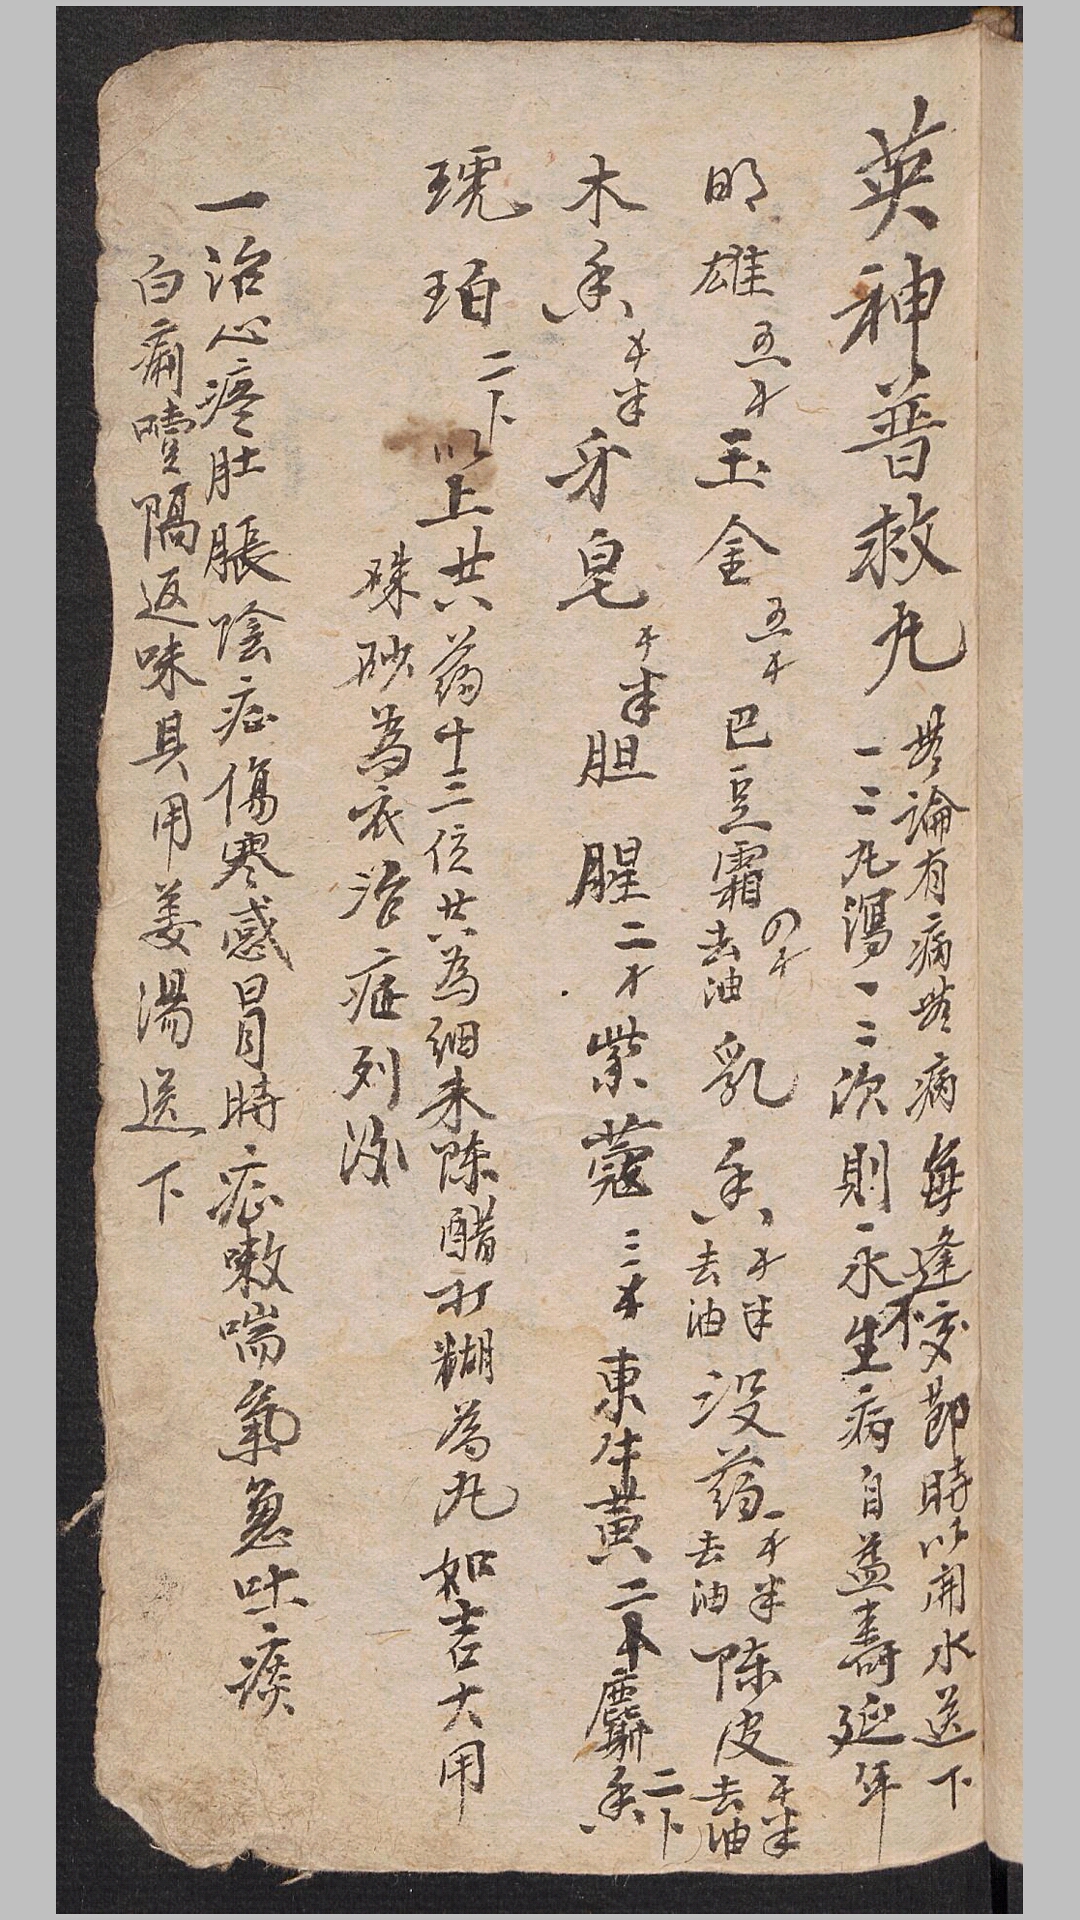 英神普救丸
無論有病無病每逢交節時以開水送下
一二丸瀉一二次則永不生病自益壽延年
明雄五才玉金五才巴豆霜四才去油乳香才半去油没药一才半去油陈皮才半去油
木香才半牙皂才半胆腥二才紫蔻三才東牛黃二卜麝香二卜
琥珀二卜
以上共药十三位共為細末陈醋打糊為丸如吉大用
硃砂為衣治症列后
一治心疼肚脹陰症傷寒感冒時症嗽喘氣急吐痰
白痢噎隔返味具用姜湯送下